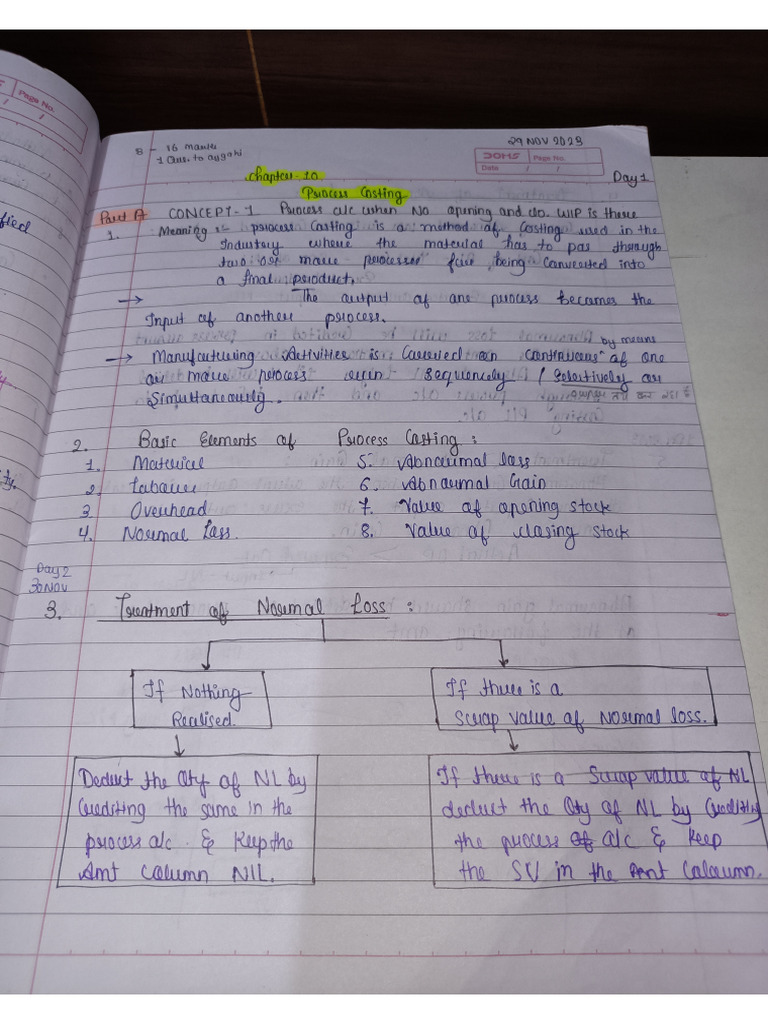 Page No.
8 - 16 marks
1 Ques. to aygahi
29 NOV 2023
DOMS
Page No.
Date
Day 1
Chapter-10
Process Costing
Part A CONCEPT-1 Process a/c when NO opening and do. WIP is there
1. Meaning :- process Costing is a method of Costing used in the
Industory where the material has to pas through
two or more processes for being Converted into
a final product.
→ The output of one process becomes the
Input of another process.
by means
→ Manufacturing Activities is Carried on continuous of one
or more process run sequencely / Selectively or
Simultaneously.
2. Basic Elements of Process Costing :
1. Material 5. Abnormal loss
2. Labour 6. Abnormal Gain
3 Overhead 7. Value of opening stock
4. Normal Loss. 8. Value of closing stock
Day 2
30 NOV
3. Treatment of Normal Loss :
If Nothing
Realised.
If there is a
Scrap value of Normal loss.
Deduct the Qty of NL by
Crediting the same in the
process a/c & keep the
Amt column NIL.
If there is a Scrap value of NL
deduct the Qty of NL by Crediting
the process of a/c & keep
the SV in the Amt Coloumn.